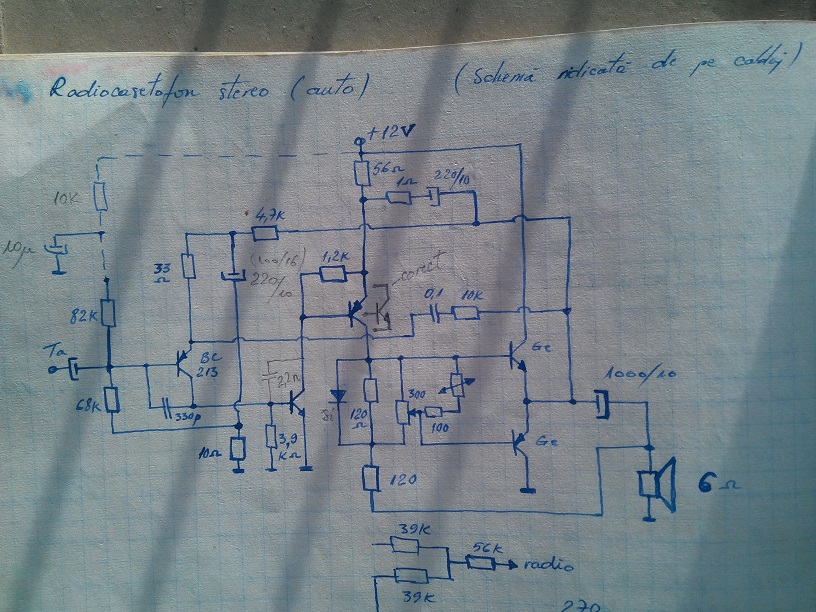 Radiocasetofon stereo (auto)
(Schemă ridicată de pe cablaj)
+12V
56Ω
1Ω
220/10
10K
4,7K
10μ
33
Ω
(100/16)
220/10
1,2K
corect
82K
0,1
10K
Ta
BC
213
Ge
1000/10
2,2n
68K
330p
Si
120
Ω
300
100
Ge
10Ω
3,9
KΩ
120
6Ω
39K
56K
radio
39K
270